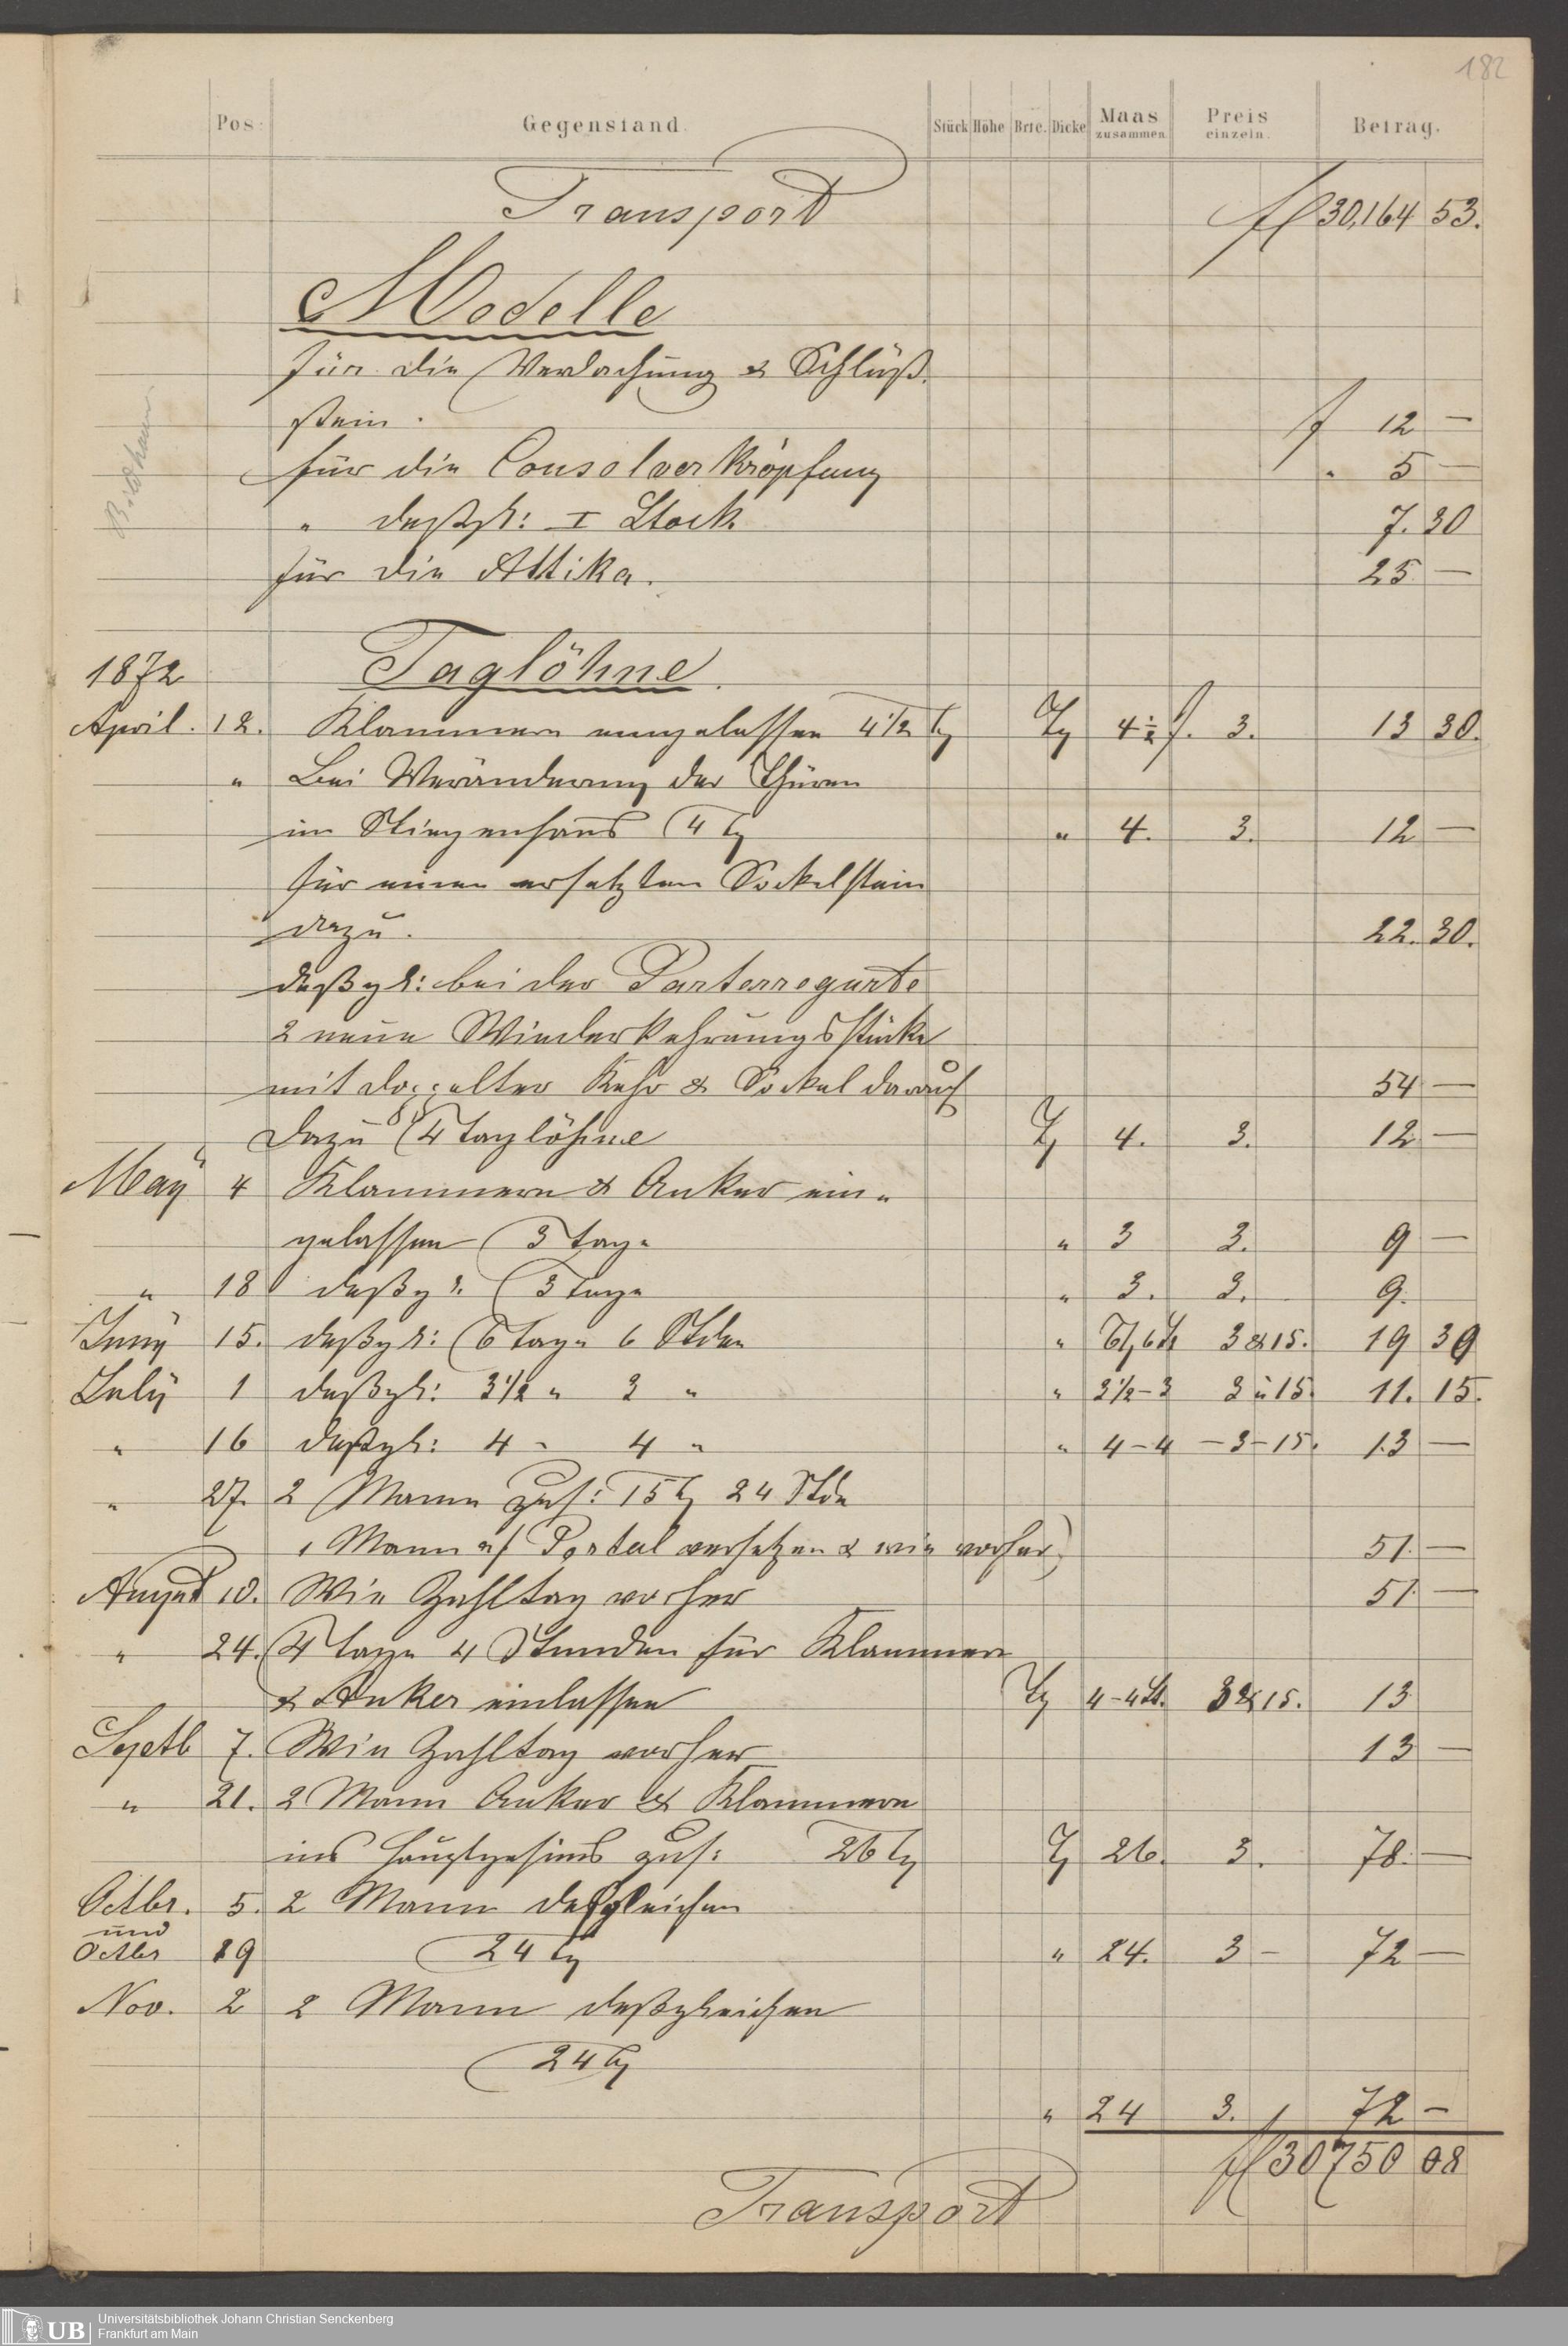 182
Pos. Gegenstand. Stück Höhe Brte. Dicke Maas zusammen Preis einzeln. Betrag.
Transport fl 30,164 53.
Modelle
für die Verdachung & Schluß-
stein. f 12 —
für die Consolverkröpfung " 5 —
" deßgl: I Stock 7. 30
für die Attika. 25 —
Bildhauer
1872 Taglöhne.
April. 12. Klammern eingelassen 4 1/2 Tg Tg 4 1/2 f. 3. 13 30.
" Bei Veränderung der Thüren
im Stiegenhaus 4 Tg " 4. 3. 12 —
für einen ersetzten Sockelstein
dazu. 22. 30.
deßgl: bei der Parterregurte
2 neue Wiederkehrungsstücke
mit doppelter Kehr & Sockel darauf 54 —
Dazu 4 Taglöhne Tg 4. 3. 12 —
May 4 Klammern & Anker ein-
gelassen 3 Tage " 3 3. 9 —
" 18 deßgl. 3 Tage " 3. 3. 9.
Juny 15. deßgl: 6 Tage 6 Stden " 6 Tg 6 St 3 & 15. 19 30
July 1 deßgl: 3 1/2 " 3 " " 3 1/2 - 3 3 u 15. 11. 15.
" 16 deßgl: 4 " 4 " " 4 - 4 - 3 - 15. 13 —
" 27. 2 Mann zus: 15 Tg 24 Stde
1 Mann a/ Portal versetzen & wie vorher 51. —
August 10. Wie Zahltag vorher 51 —
" 24. 4 Tage 4 Stunden für Klammern
& Anker einlassen Tg 4 - 4 St. 3 & 15. 13
Septb 7. Wie Zahltag vorher 13 —
" 21. 2 Mann Anker & Klammern
ins Hauptgesims zus: 26 Tg Tg 26. 3. 78. —
Octbr. 5. 2 Mann desgleichen
und
Octbr 19 24 Tg " 24. 3 - 72 —
Nov. 2 2 Mann deßgleichen
24 Tg
" 24 3. 72 —
fl 30750 08
Transport
UB Universitätsbibliothek Johann Christian Senckenberg
Frankfurt am Main